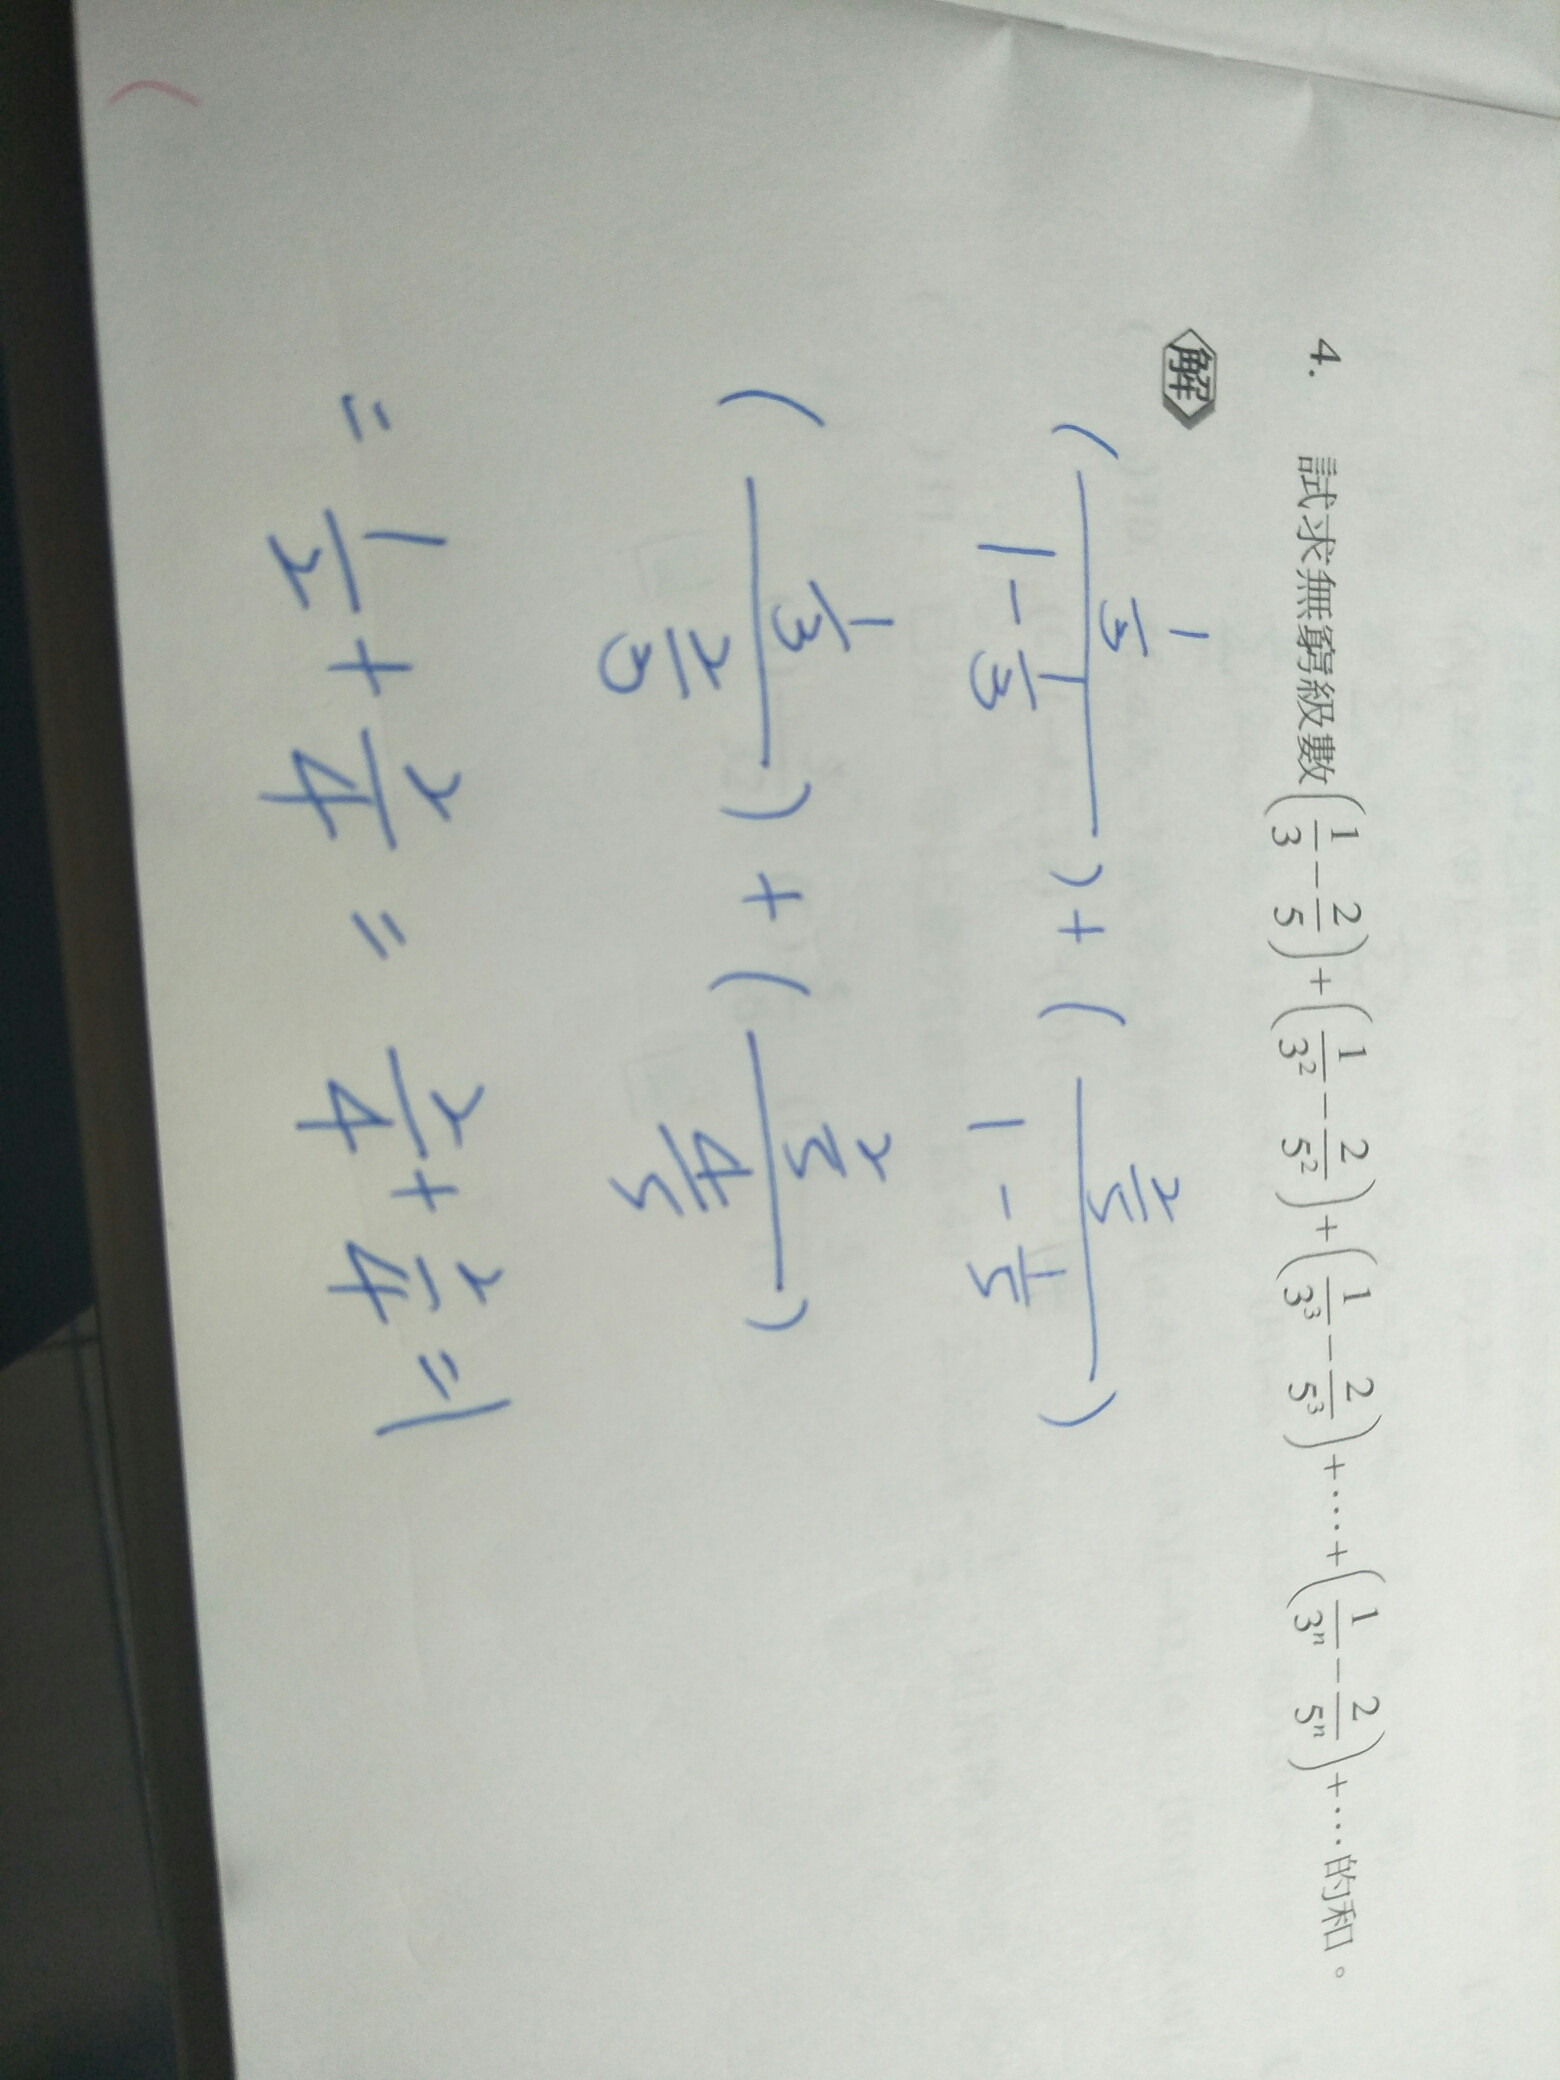 4. 試求無窮級數(1/3 − 2/5) + (1/3² − 2/5²) + (1/3³ − 2/5³) + ⋯ + (1/3ⁿ − 2/5ⁿ) + ⋯ 的和。
解
((1/3)/(1 − 1/3)) + ((2/5)/(1 − 1/5))
((1/3)/(2/3)) + ((2/5)/(4/5))
= 1/2 + 2/4 = 2/4 + 2/4 = 1